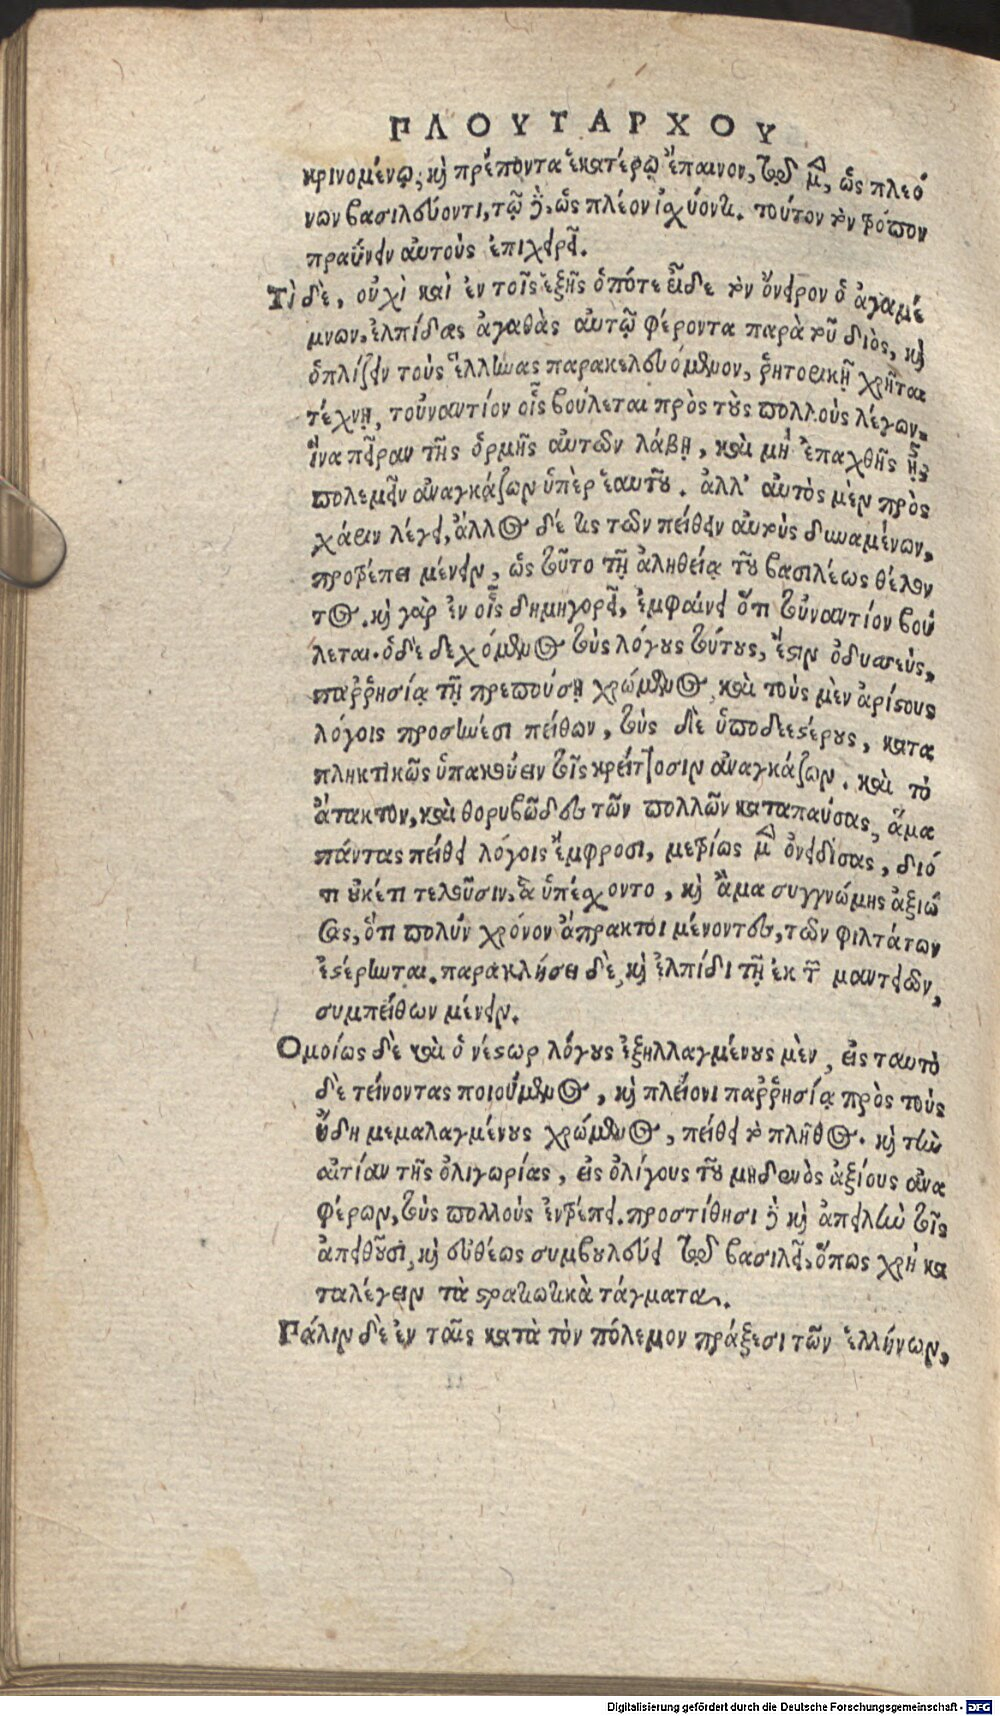 ΠΛΟΥΤΑΡΧΟΥ
κρινομένῳ, καὶ πρέποντα ἑκατέρῳ ἔπαινον, τῷ μὲν, ὡς πλεό
νων βασιλεύοντι, τῷ δὲ, ὡς πλέον ἰσχύοντι. τοῦτον τὸν τρόπον
πραΰνειν αὐτοὺς ἐπιχειρεῖ.
Τί δὲ, οὐχὶ καὶ ἐν τοῖς ἑξῆς ὁπότε εἶδε τὸν ὄνειρον ὁ ἀγαμέ
μνων, ἐλπίδας ἀγαθὰς αὐτῷ φέροντα παρὰ τοῦ διὸς, καὶ
ὁπλίζειν τοὺς ἕλληνας παρακελευόμενον, ῥητορικῇ χρῆται
τέχνῃ, τοὐναντίον οἷς βούλεται πρὸς τοὺς πολλοὺς λέγων.
ἵνα πεῖραν τῆς ὁρμῆς αὐτῶν λάβῃ, καὶ μὴ ἐπαχθὴς ᾖ
πολεμεῖν ἀναγκάζων ὑπὲρ ἑαυτοῦ. ἀλλ' αὐτὸς μὲν πρὸς
χάριν λέγει, ἄλλος δέ τις τῶν πείθειν αὐτοὺς δυναμένων,
προτρέπει μένειν, ὡς τοῦτο τῇ ἀληθείᾳ τοῦ βασιλέως θέλον
τος. καὶ γὰρ ἐν οἷς δημηγορεῖ, ἐμφαίνει ὅτι τοὐναντίον βού
λεται. ὁ δὲ δεχόμενος τοὺς λόγους τούτους, ἔστιν ὀδυσεὺς,
παῤῥησίᾳ τῇ πρεπούσῃ χρώμενος, καὶ τοὺς μὲν ἀρίστους
λόγοις προσηνέσι πείθων, τοὺς δὲ ὑποδεεστέρους, κατα
πληκτικῶς ὑπακούειν τοῖς κρείττοσιν ἀναγκάζων. καὶ τὸ
ἄτακτον, καὶ θορυβῶδες τῶν πολλῶν καταπαύσας, ἅμα
πάντας πείθει λόγοις ἔμφροσι, μετρίως μὲν ὀνειδίσας, διό
τι οὐκέτι τελοῦσιν, ἃ ὑπέσχοντο, καὶ ἅμα συγγνώμης ἀξιώ
σας, ὅτι πολὺν χρόνον ἄπρακτοι μένοντες, τῶν φιλτάτων
ἐστέρηνται. παρακλήσει δὲ, καὶ ἐλπίδι τῇ ἐκ τῶν μαντειῶν,
συμπείθων μένειν.
Ὁμοίως δὲ καὶ ὁ νέστωρ λόγους ἐξηλλαγμένους μὲν, εἰς ταυτὸ
δὲ τείνοντας ποιούμενος, καὶ πλείονι παῤῥησίᾳ πρὸς τοὺς
ἤδη μεμαλαγμένους χρώμενος, πείθει τὸ πλῆθος. καὶ τὴν
αἰτίαν τῆς ὀλιγωρίας, εἰς ὀλίγους τοῦ μηδενὸς ἀξίους ἀνα
φέρων, τοὺς πολλοὺς ἐντρέπει. προστίθησι δὲ καὶ ἀπειλὴν τοῖς
ἀπειθοῦσι, καὶ εὐθέως συμβουλεύει τῷ βασιλεῖ, ὅπως χρὴ κα
ταλέγειν τὰ στρατιωτικὰ τάγματα.
Πάλιν δὲ ἐν ταῖς κατὰ τὸν πόλεμον πράξεσι τῶν ἑλλήνων,
Digitalisierung gefördert durch die Deutsche Forschungsgemeinschaft - DFG